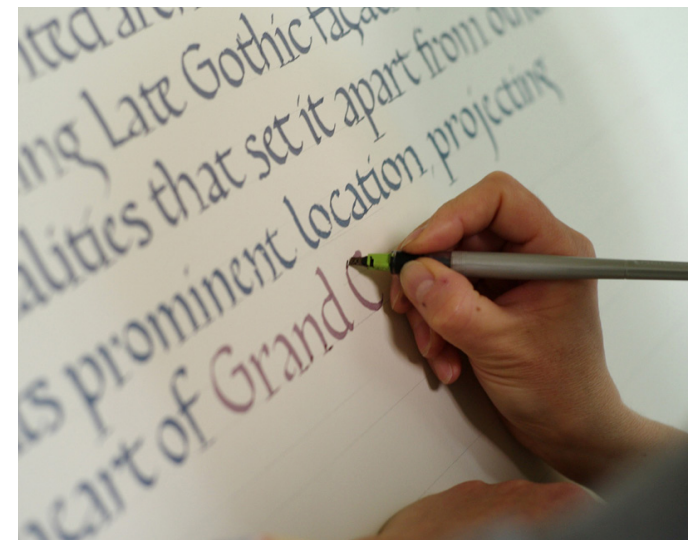 ing Late Gothic façad
alities that set it apart from othe
its prominent location projecting
of Grand C